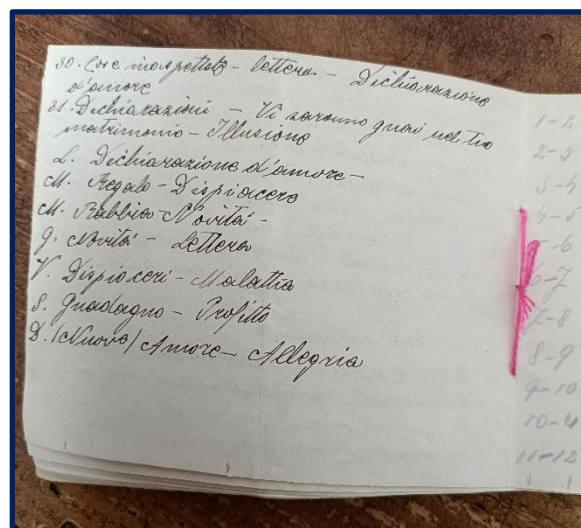 30. Cose inaspettate - lettera - Dichiarazione
d'amore
31. Dichiarazioni - Vi saranno guai nel tuo
matrimonio - Illusione
L. Dichiarazione d'amore -
M. Regalo - Dispiacere
M. Rabbia - Novità -
G. Novità - Lettera
V. Dispiaceri - Malattia
S. Guadagno - Profitto
D. (Nuovo) Amore - Allegria
1-2
2-3
3-4
4-5
5-6
6-7
7-8
8-9
9-10
10-11
11-12